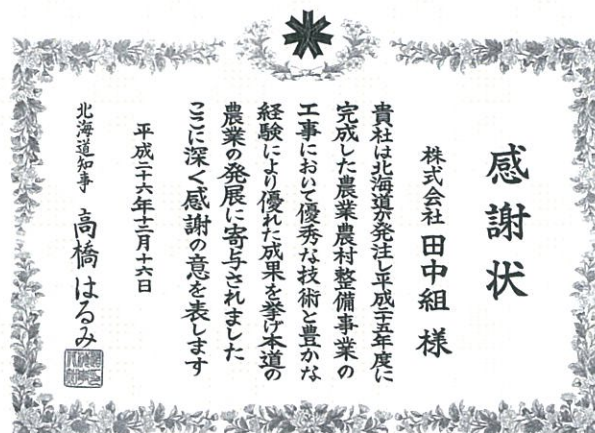 感謝状
株式会社 田中組 様
貴社は北海道が発注し平成二十五年度に
完成した農業農村整備事業の
工事において優秀な技術と豊かな
経験により優れた成果を挙げ本道の
農業の発展に寄与されました
ここに深く感謝の意を表します
平成二十六年十二月十六日
北海道知事 高橋はるみ